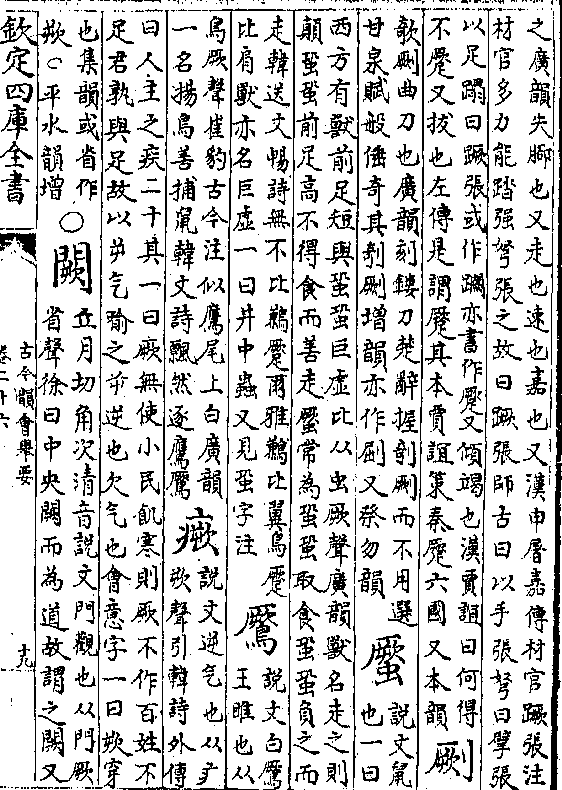 之廣韻失腳也又走也速也嘉也又漢申屠嘉傳材官蹶張注
材官多力能踏强弩張之故曰蹶張師古曰以手張弩曰擘張
以足蹋曰蹶張或作蹷亦書作蹷又傾竭也漢賈誼曰何得
不蹷又拔也左傳是謂蹷其本賈誼策秦蹷六國又本韻 劂
欹劂曲刀也廣韻刻鏤刀楚辭握剞劂而不用選
甘泉賦般倕奇其剞劂增韻亦作㓖又發勿韻 蟨 說文鼠也一曰
西方有獸前足短與蛩蛩巨虛比从虫厥聲廣韻獸名走之則
顛蛩蛩前足高不得食而善走蟨常為蛩蛩取食蛩蛩負之而
走韓送文暢詩無不比鶼蟨爾雅鶼比翼鳥蟨
比肩獸亦名巨虛一曰井中蟲又見蛩字注 鷢 說文白鷢王雎也从
鳥厥聲崔豹古今注似鷹尾上白廣韻
一名揚鳥善捕鼠韓文詩飄然逐鷹鷢 瘚 說文逆气也从疒欮聲引韓詩外傳
曰人主之疾二十其一曰厥無使小民飢寒則厥不作百姓不
足君孰與足故以屰气喻之屰逆也欠气也會意字一曰欮穿
也集韻或省作
欮○平水韻增 ○闕 丘月切角次清音說文門觀也从門厥
省聲徐曰中央闕而為道故謂之闕又
欽定四庫全書
古今韻會舉要
卷二十六
十九